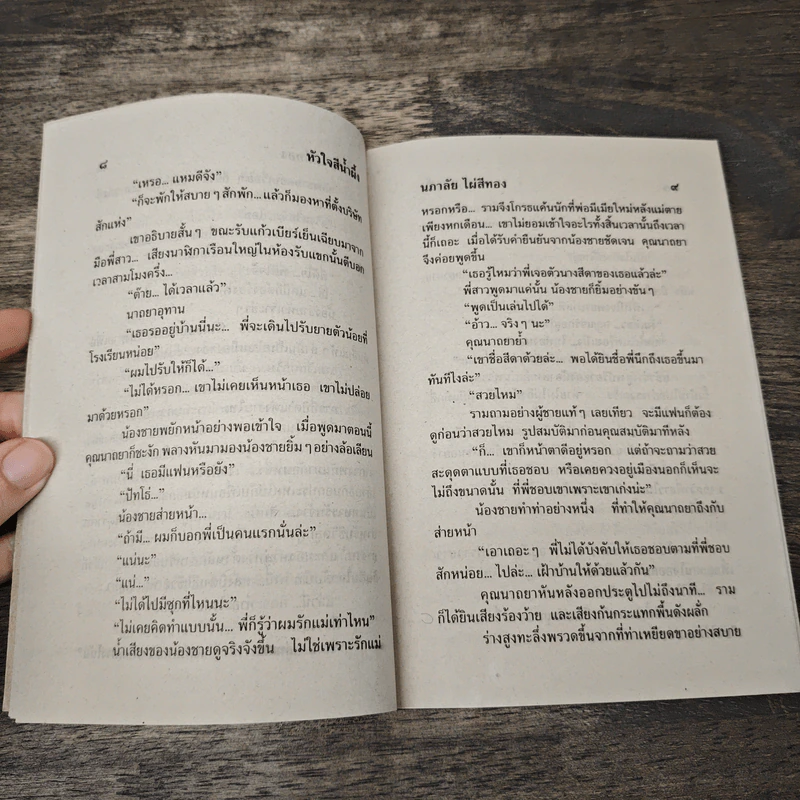 ๘
หัวใจสีน้ำผึ้ง
“เหรอ... แหมดีจัง”
“ก็จะพักให้สบาย ๆ สักพัก... แล้วก็มองหาที่ตั้งบริษัท
สักแห่ง”
เขาอธิบายสั้น ๆ ขณะรับแก้วเบียร์เย็นเฉียบมาจาก
มือพี่สาว... เสียงนาฬิกาเรือนใหญ่ในห้องรับแขกนั้นตีบอก
เวลาสามโมงครึ่ง...
“ต๊าย... ได้เวลาแล้ว”
นาถยาอุทาน
“เธอรออยู่บ้านนี่นะ... พี่จะเดินไปรับยายตัวน้อยที่
โรงเรียนหน่อย”
“ผมไปรับให้ก็ได้...”
“ไม่ได้หรอก... เขาไม่เคยเห็นหน้าเธอ เขาไม่ปล่อย
มาด้วยหรอก”
น้องชายพยักหน้าอย่างพอเข้าใจ เมื่อพูดมาตอนนี้
คุณนาถยาก็ชะงัก พลางหันมามองน้องชายยิ้ม ๆ อย่างล้อเลียน
“นี่ เธอมีแฟนหรือยัง”
“ปัทโธ่...”
น้องชายส่ายหน้า...
“ถ้ามี... ผมก็บอกพี่เป็นคนแรกนั่นล่ะ”
“แน่นะ”
“แน่...”
“ไม่ได้ไปมีซุกที่ไหนนะ”
“ไม่เคยคิดทำแบบนั้น... พี่ก็รู้ว่าผมรักแม่เท่าไหน”
น้ำเสียงของน้องชายดูจริงจังขึ้น ไม่ใช่เพราะรักแม่
นภาลัย ไผ่สีทอง
๙
หรอกหรือ... รามจึงโกรธแค้นนักที่พ่อมีเมียใหม่หลังแม่ตาย
เพียงหกเดือน... เขาไม่ยอมเข้าใจอะไรทั้งสิ้นเวลานั้นถึงเวลา
นี้ก็เถอะ เมื่อได้รับคำยืนยันจากน้องชายชัดเจน คุณนาถยา
จึงค่อยพูดขึ้น
“เธอรู้ไหมว่าพี่เจอตัวนางสีดาของเธอแล้วล่ะ”
พี่สาวพูดมาแค่นั้น น้องชายก็ยิ้มอย่างขัน ๆ
“พูดเป็นเล่นไปได้”
“อ้าว... จริง ๆ นะ”
คุณนาถยาย้ำ
“เขาชื่อสีดาด้วยล่ะ... พอได้ยินชื่อพี่นึกถึงเธอขึ้นมา
ทันทีไงล่ะ”
“สวยไหม”
รามถามอย่างผู้ชายแท้ ๆ เลยเทียว จะมีแฟนก็ต้อง
ดูก่อนว่าสวยไหม รูปสมบัติมาก่อนคุณสมบัติมาทีหลัง
“ก็... เขาก็หน้าตาดีอยู่หรอก แต่ถ้าจะถามว่าสวย
สะดุดตาแบบที่เธอชอบ หรือเคยควงอยู่เมืองนอกก็เห็นจะ
ไม่ถึงขนาดนั้น ที่พี่ชอบเขาเพราะเขาเก่งน่ะ”
น้องชายทำท่าอย่างหนึ่ง ที่ทำให้คุณนาถยาถึงกับ
ส่ายหน้า
“เอาเถอะ ๆ พี่ไม่ได้บังคับให้เธอชอบตามที่พี่ชอบ
สักหน่อย... ไปล่ะ... เฝ้าบ้านให้ด้วยแล้วกัน”
คุณนาถยาหันหลังออกประตูไปไม่ถึงนาที... ราม
ก็ได้ยินเสียงร้องว้าย และเสียงก้นกระแทกพื้นดังผลั่ก
ร่างสูงทะลึ่งพรวดขึ้นจากที่ท่าเหยียดขาอย่างสบาย